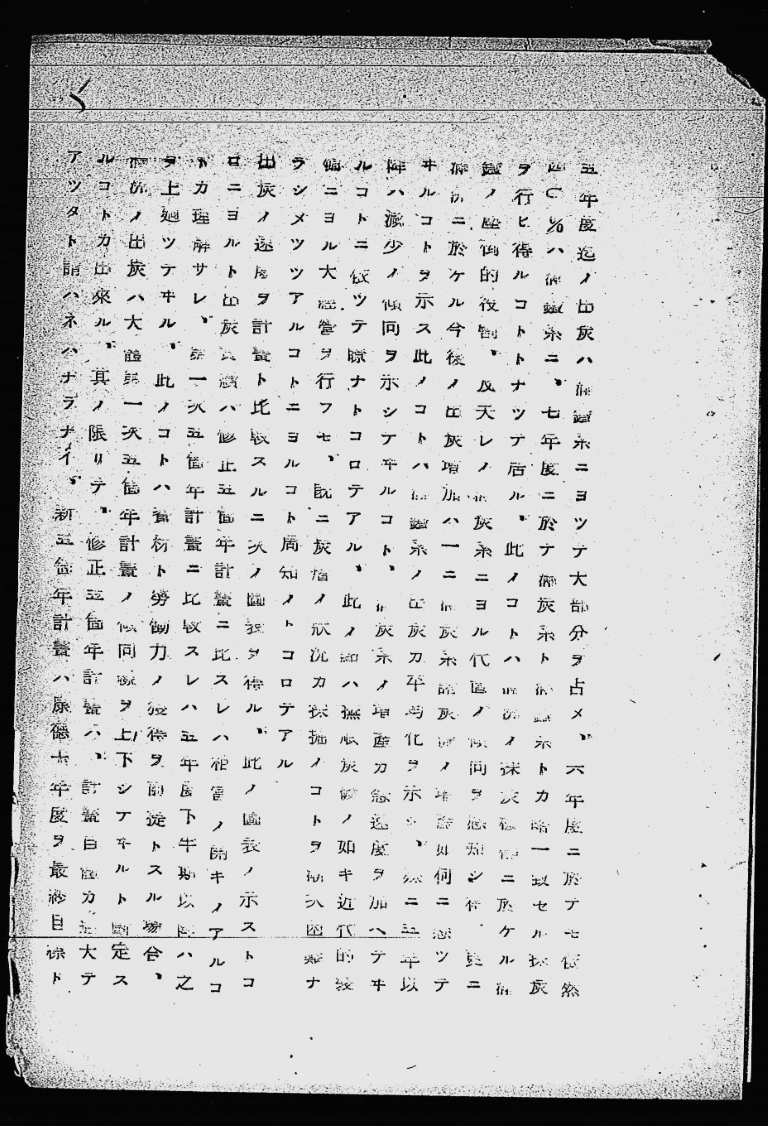 五年度迄ノ出炭ハ満鐵系ニヨツテ大部分ヲ占メ、六年度ニ於テモ依然
四〇%ハ満鐵系ニ、七年度ニ於テ満炭系ト満鐵系トカ略一致セル採炭
ヲ行ヒ得ルコトトナツテ居ル、此ノコトハ満洲ノ採炭ニ於ケル満
鐵ノ壓倒的役割、反天レノ満炭系ニヨル代置ノ傾向ヲ感知シ得、更ニ
満洲ニ於ケル今後ノ出炭増加ハ一ニ満炭系諸炭礦ノ増産如何ニ懸ツテ
ヰルコトヲ示ス此ノコトハ満鐵系ノ出炭カ平均化ヲ示シ、殊ニ五年以
降ハ減少ノ傾向ヲ示シテヰルコト、満炭系ノ増産カ急速度ヲ加ヘテヰ
ルコトニ依ツテ瞭ナトコロテアル、此ノ點ハ撫順炭礦ノ如キ近代的設
備ニヨル大經營ヲ行フモ、既ニ炭層ノ狀況カ採掘ノコトヲ漸次困難ナ
ラシメツツアルコトニヨルコト周知ノトコロテアル
出炭ノ速度ヲ計畫ト比較スルニ次ノ圖表ヲ得ル、此ノ圖表ノ示ストコ
ロニヨルト出炭實績ハ修正五個年計畫ニ比スレハ相當ノ開キノアルコ
トカ理解サレ、第一次五個年計畫ニ比較スレハ五年度下半期以降ハ之
ヲ上廻ツテヰル、此ノコトハ資材ト勞働力ノ獲得ヲ前提トスル場合、
満洲ノ出炭ハ大體第一次五個年計畫ノ傾同線ヲ上下シテヰルト斷定ス
ルコトカ出來ル、其ノ限リテ、修正五個年計畫ハ、計畫自體カ過大テ
アツタト謂ハネハナラナイ、新五個年計畫ハ康德十年度ヲ最終目標ト